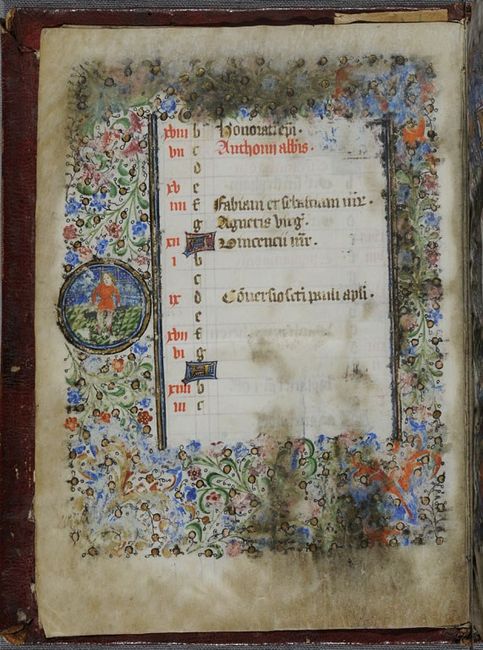 xviii b Honorati ep̄i.
vii c Anthonii abb̄is.
d
xv e
iiii f Fabiani et sebastiani mr̄.
g Agnetis virḡ.
xii A Vincencii mr̄.
i b
c
ix d Cōversio sc̄ti pauli apl̄i.
e
xvii f
vi g
A
xiiii b
iii c